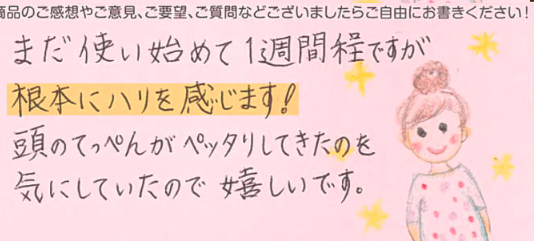 商品のご感想やご意見、ご要望、ご質問などございましたらご自由にお書きください!
まだ使い始めて1週間程ですが
根本にハリを感じます!
頭のてっぺんがペッタリしてきたのを
気にしていたので嬉しいです。